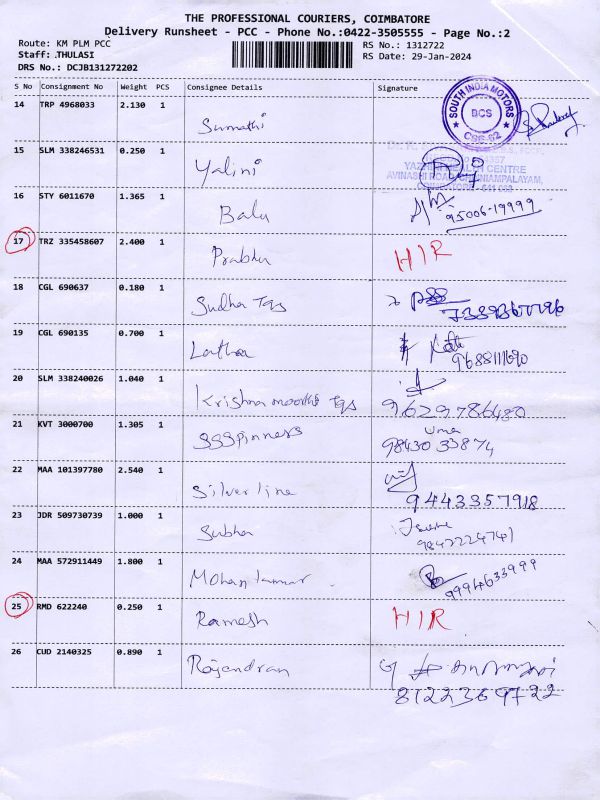 THE PROFESSIONAL COURIERS, COIMBATORE
Delivery Runsheet - PCC - Phone No.:0422-3505555 - Page No.:2
Route: KM PLM PCC RS No.: 1312722
Staff: .THULASI RS Date: 29-Jan-2024
DRS No.: DCJB131272202
S No Consignment No Weight PCS Consignee Details Signature
14 TRP 4968033 2.130 1 Sumathi
SOUTH INDIA MOTORS
BCS
CBE-62
15 SLM 338246531 0.250 1 Yalini
CENTRE
AVINASHI ROAD
16 STY 6011670 1.365 1 Balu 95006-19999
17 TRZ 335458607 2.400 1 Prabhu HIR
18 CGL 690637 0.180 1 Sudha Tgs
19 CGL 690135 0.700 1 Latha 9688111690
20 SLM 338240026 1.040 1 Krishna moorthi Tgs 9629786480
21 KVT 3000700 1.305 1 SSSpinners Uma
98430 33874
22 MAA 101397780 2.540 1 Silverline 9443357918
23 JDR 509730739 1.000 1 Subha 9842224741
24 MAA 572911449 1.800 1 Mohan kumar 9994633999
25 RMD 622240 0.250 1 Ramesh HIR
26 CUD 2140325 0.890 1 Rajendran
8122369722